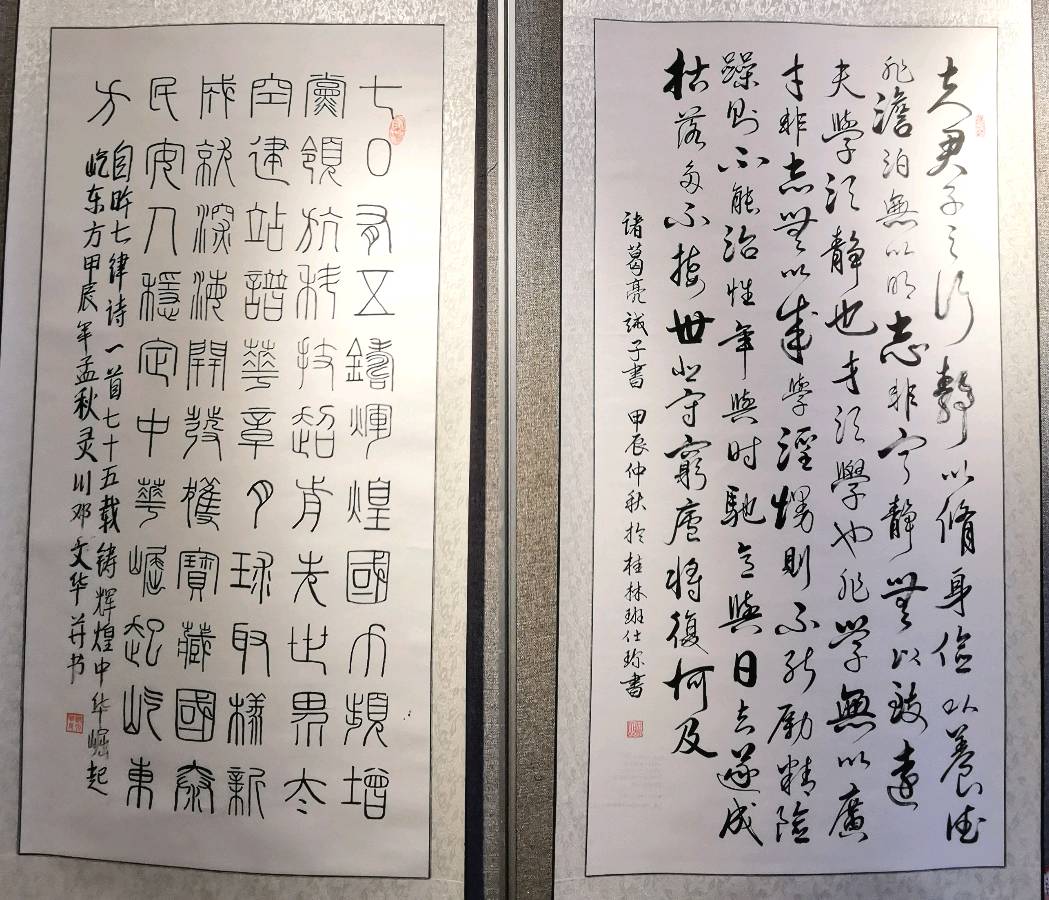 夫君子之行靜以脩身儉以養德
非澹泊無以明志非寧靜無以致遠
夫學須靜也才須學也非學無以廣
才非志無以成學淫慢則不能勵精險
躁則不能治性年與時馳意與日去遂成
枯落多不接世悲守窮廬將復何及
諸葛亮誡子書 甲辰仲秋於桂林班仕琼書
七有五鑄煇煌國力頻增
黨領航科技超前先世界太
空建站譜華章月球取樣新
成就深海開發獲寶藏國泰
民安人穩定中華崛起屹東
方
自吟七律诗一首七十五载铸辉煌中华崛起
屹东方甲辰年孟秋灵川邓文华并书